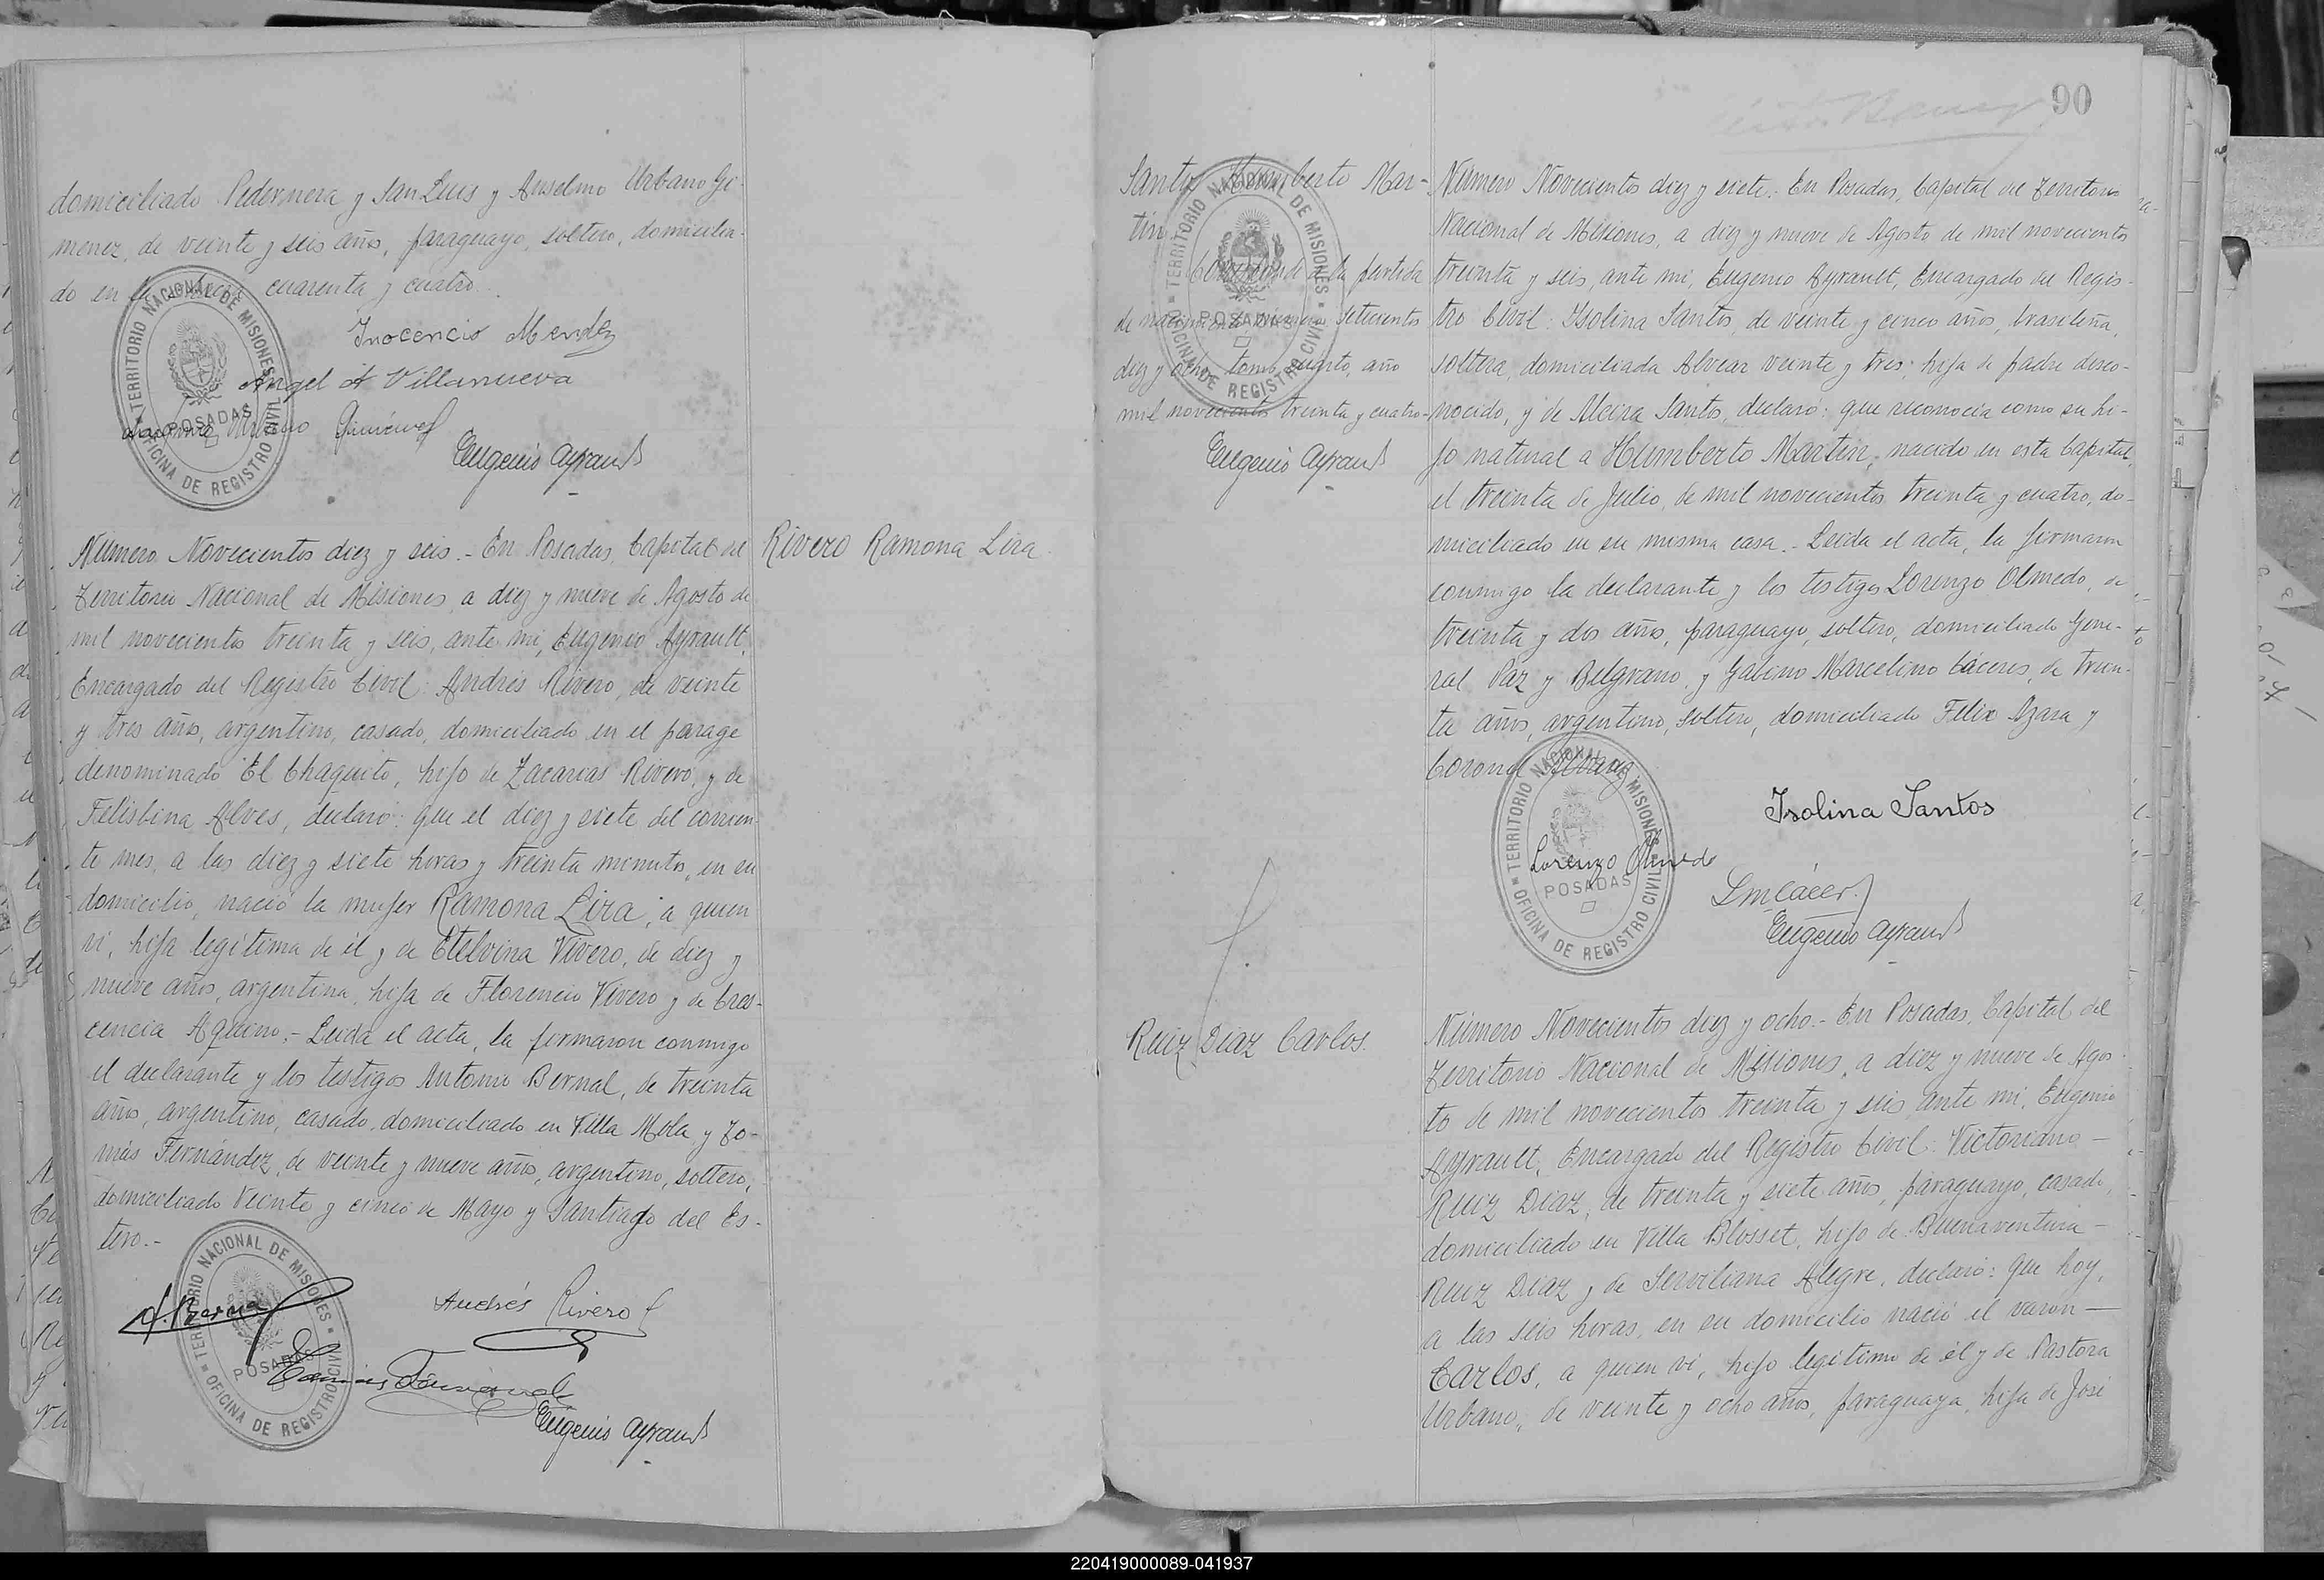 domiciliado Pedernera y San Luis y Anselmo Urbano Gi-
menez, de veinte y seis años, paraguayo, soltero, domicilia-
do en la chacra cuarenta y cuatro.
Inocencio Mendez
Angel A Villanueva
Urbano Giménez
Eugenio Ayrault
TERRITORIO NACIONAL DE MISIONES
POSADAS
OFICINA DE REGISTRO CIVIL
Número Novecientos diez y seis.- En Posadas, Capital del
Territorio Nacional de Misiones, a diez y nueve de Agosto de
mil novecientos treinta y seis, ante mi, Eugenio Ayrault,
Encargado del Registro Civil: Andrés Rivero, de veinte
y tres años, argentino, casado, domiciliado en el parage
denominado El Chaquito, hijo de Zacarias Rivero, y de
Felisbina Alves, declaró: que el diez y siete del corrien-
te mes, a las diez y siete horas y treinta minutos, en su
domicilio, nació la mujer Ramona Lira, a quien
vi, hija legitima de él y de Etelvina Vivero, de diez y
nueve años, argentina, hija de Florencio Vivero y de Cres-
cencia Aquino.- Leida el acta, la firmaron conmigo
el declarante y los testigos Antonio Bernal, de treinta
años, argentino, casado, domiciliado en Villa Mola y To-
más Fernández, de veinte y nueve años, argentino, soltero,
domiciliado Veinte y cinco de Mayo y Santiago del Es-
tero.-
A. Bernal
Andrés Rivero
Tomás Fernández
Eugenio Ayrault
TERRITORIO NACIONAL DE MISIONES
POSADAS
OFICINA DE REGISTRO CIVIL
Rivero Ramona Lira.
90
Santos Humberto Mar-
tin
Corresponde a la partida
de nacimiento número setecientos
diez y ocho, tomo cuarto, año
mil novecientos treinta y cuatro-
Eugenio Ayrault
TERRITORIO NACIONAL DE MISIONES
POSADAS
OFICINA DE REGISTRO CIVIL
Número Novecientos diez y siete.- En Posadas, Capital del Territorio
Nacional de Misiones, a diez y nueve de Agosto de mil novecientos
treinta y seis, ante mi, Eugenio Ayrault, Encargado del Regis-
tro Civil: Isolina Santos, de veinte y cinco años, brasileña,
soltera, domiciliada Alvear veinte y tres; hija de padre desco-
nocido, y de Alcira Santos, declaró: que reconocia como su hi-
jo natural a Humberto Martin, nacido en esta Capital,
el treinta de Julio, de mil novecientos treinta y cuatro, do-
miciliado en su misma casa.- Leida el acta, la firmaron
conmigo la declarante y los testigos Lorenzo Olmedo, de
treinta y dos años, paraguayo, soltero, domiciliado Gene-
ral Paz y Belgrano, y Gabino Marcelino Cáceres, de trein-
ta años, argentino, soltero, domiciliado Felix Azara y
Coronel Alvarez
Isolina Santos
Lorenzo Olmedo
Eugenio Ayrault
TERRITORIO NACIONAL DE MISIONES
POSADAS
OFICINA DE REGISTRO CIVIL
Ruiz Diaz Carlos.
Número Novecientos diez y ocho.- En Posadas, Capital del
Territorio Nacional de Misiones, a diez y nueve de Agos-
to de mil novecientos treinta y seis, ante mi, Eugenio
Ayrault, Encargado del Registro Civil: Victoriano-
Ruiz Diaz, de treinta y siete años, paraguayo, casado,
domiciliado en Villa Blosset, hijo de Buenaventura-
Ruiz Diaz y de Serviliana Alegre, declaró: que hoy,
a las seis horas, en su domicilio nació el varon-
Carlos, a quien vi, hijo legitimo de él y de Pastora
Urbano, de veinte y ocho años, paraguaya, hija de José
220419000089-041937